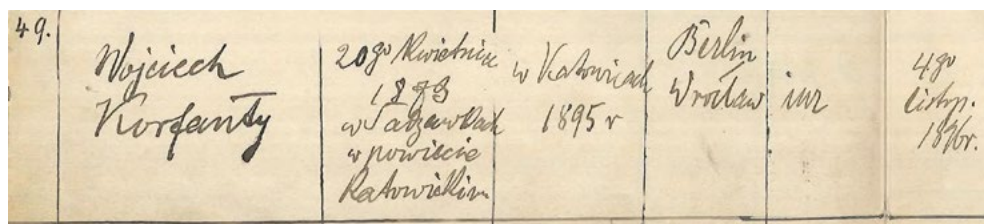 49.
Wojciech
Korfanty
20go Kwietnia
1873
w Sadzawkach
w powiecie
Katowickim
w Katowicach
1895 r
Berlin
Wrocław
iur
4go
listop.
1896r.